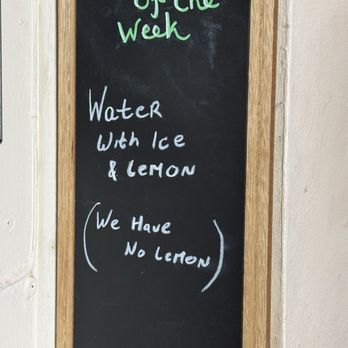 Of the
Week
Water
With Ice
& Lemon
(We Have
No Lemon)